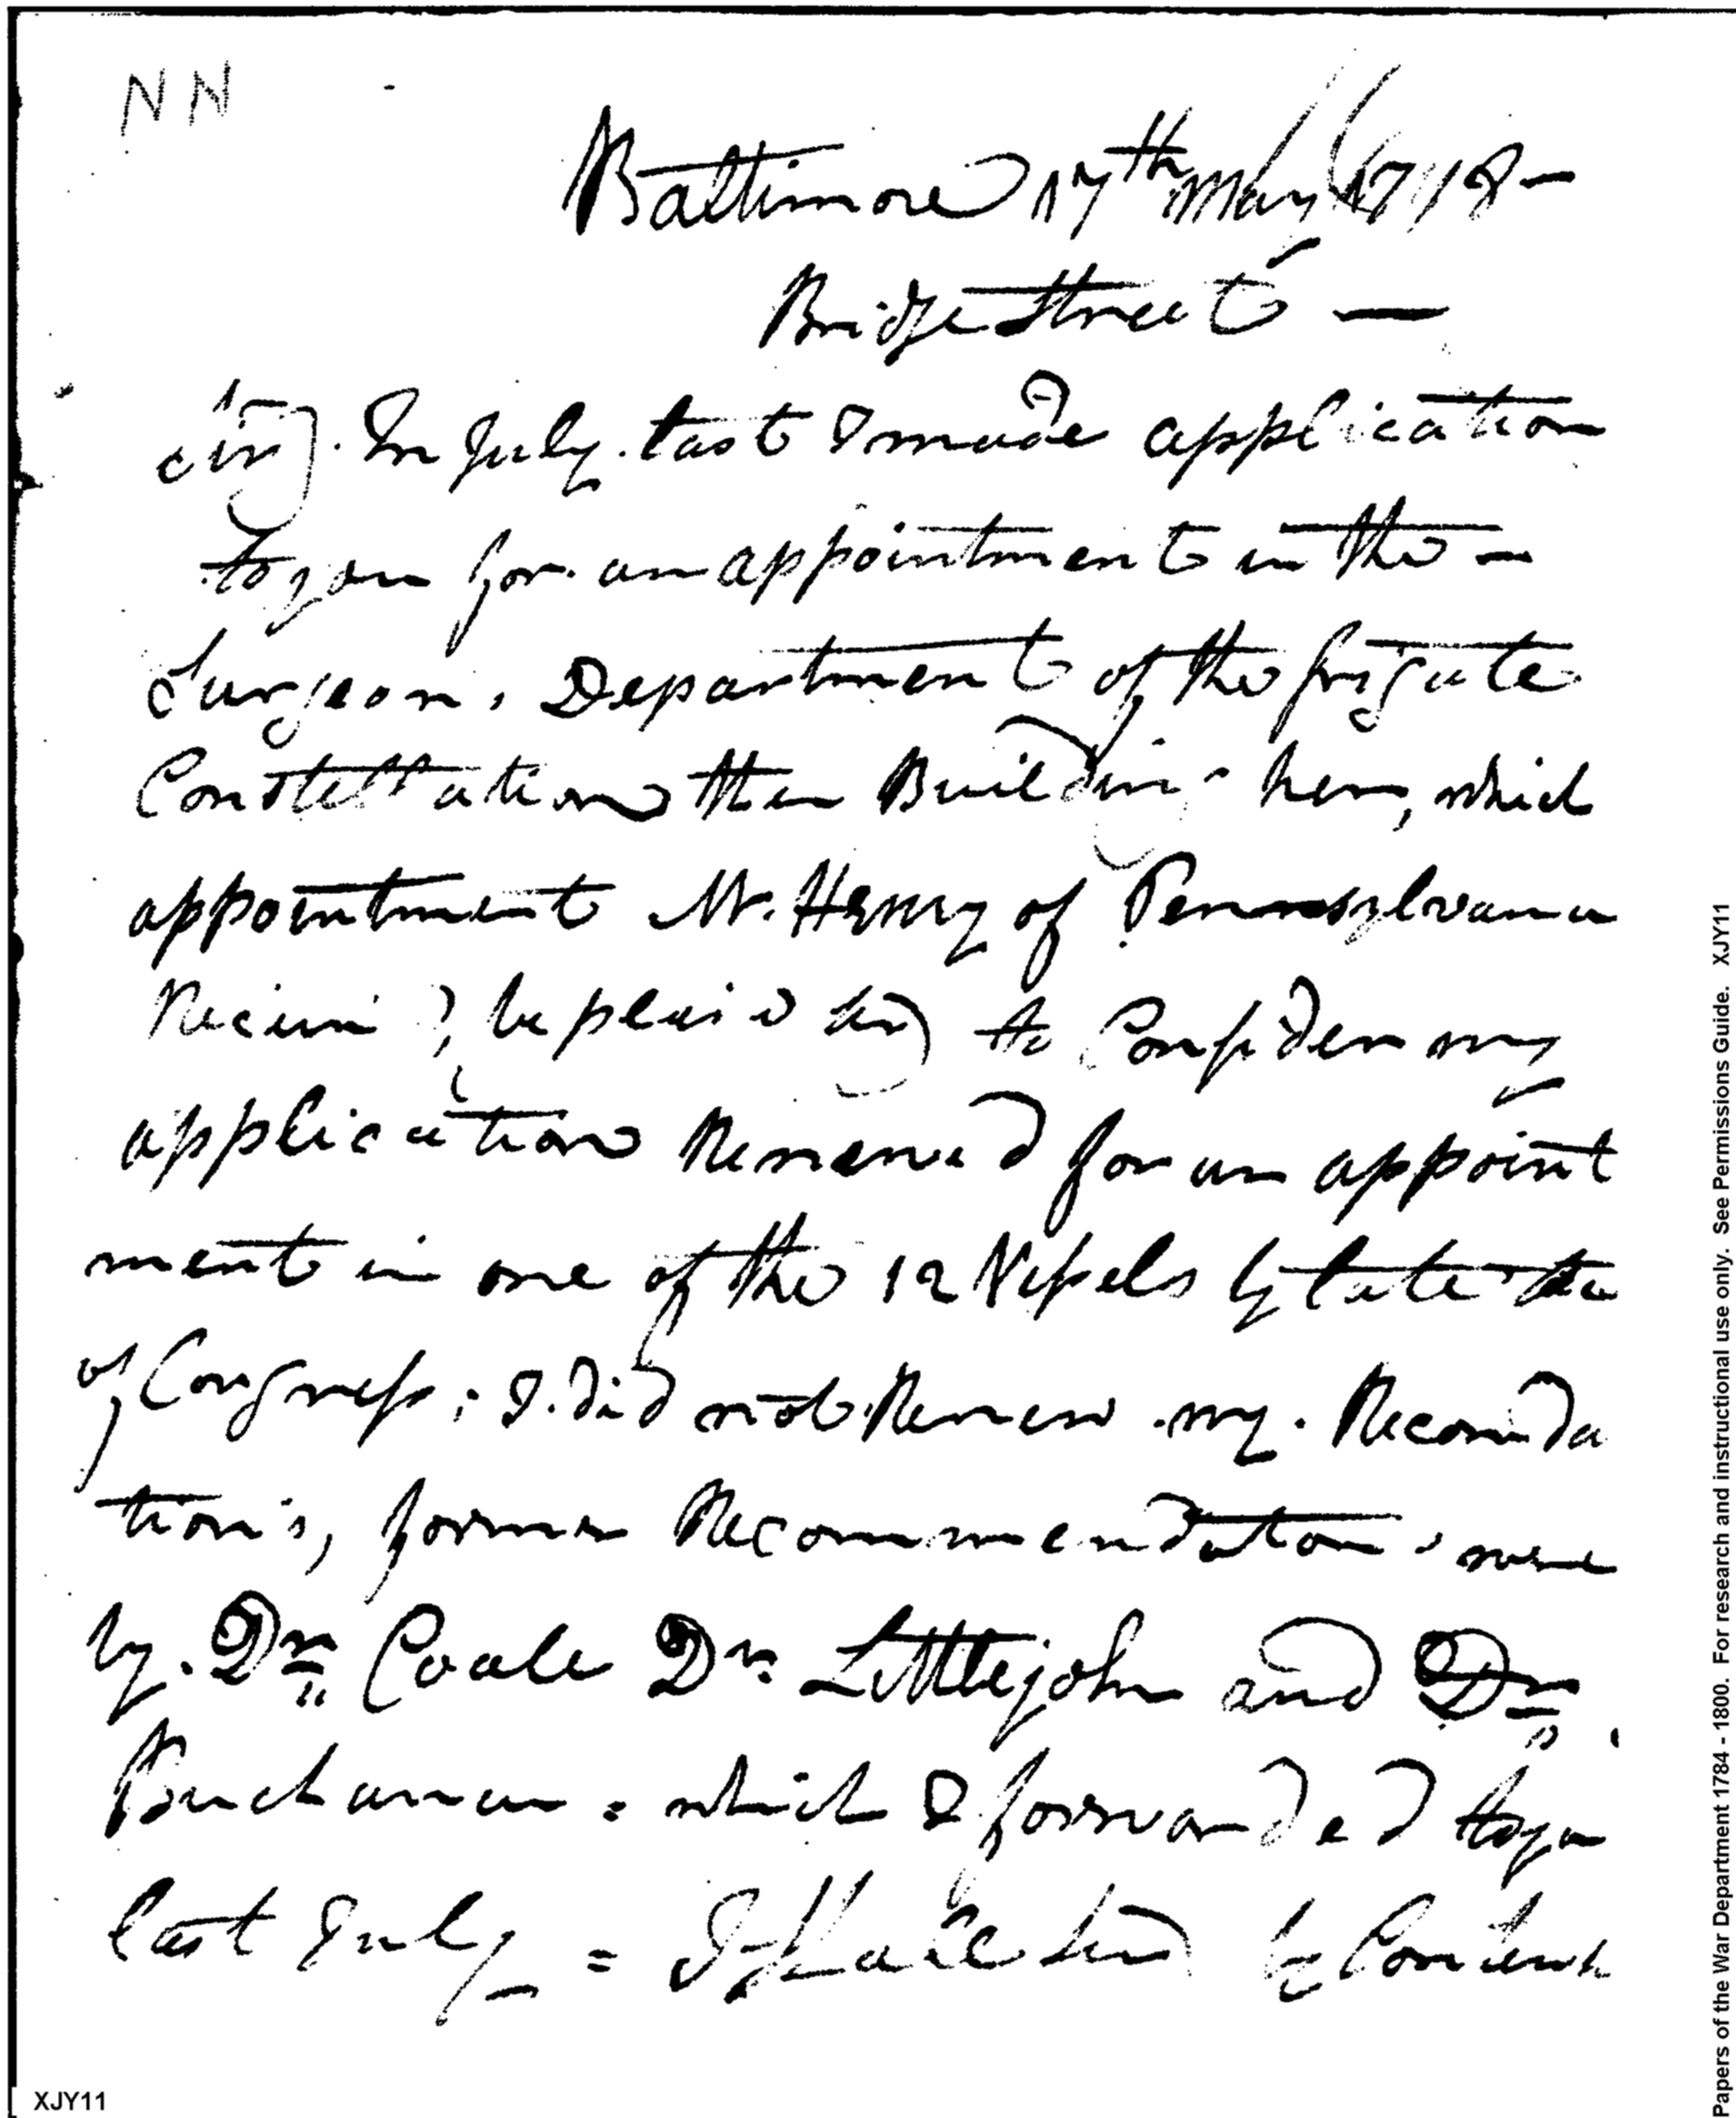 NN
Baltimore 17th May 1798 -
Bridge Street -
Sir, In July last I made application
to you for an appointment in the -
Surgeon, Department of the frigate
Constellation then Building here, which
appointment Mr. Henry of Pennsylvania
Receivd, be pleasd Sir to Consider my
application Renewed for an appoint
ment in one of the 12 Vessels by late
of Congress; I did not Renew my Recomda
tion's, former Recommendations were
by Dr. Coale Dr. Littlejohn and Dr.
Buchanan = which I forwarded to you
last July = I Shall Sir be
XJY11
Papers of the War Department 1784 - 1800. For research and instructional use only. See Permissions Guide. XJY11